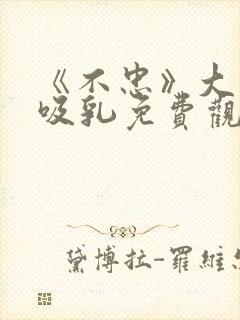 《不忠》大
吸乳免費觀
黛博拉-羅維